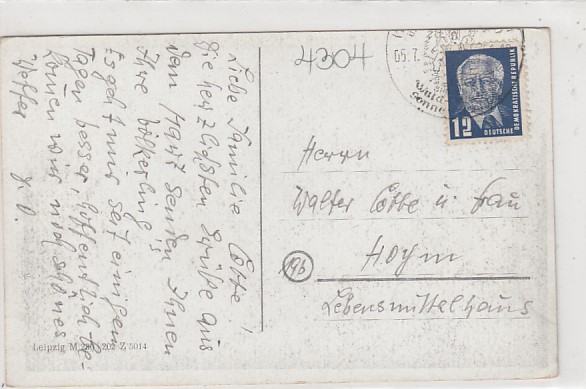 Liebe Familie Cotte!
die herzlichsten Grüße aus
dem Harz senden Ihnen
Ihre Völkerling's
Es geht mir seit einigen
Tagen besser, hoffentlich be-
kommen wir noch schönes
Wetter
4304
05.7.
Wald
sonne
12
DEUTSCHE
DEMOKRATISCHE REPUBLIK
Herrn
Walter Cotte u. Frau
Hoym
19b
Lebensmittelhaus
Leipzig M 290/202 Z 5014